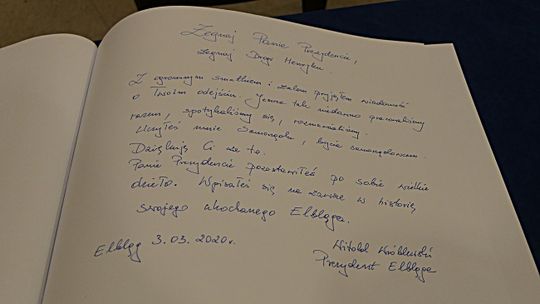 Żegnaj Panie Prezydencie,
Żegnaj Drogi Henryku.
Z ogromnym smutkiem i żalem przyjąłem wiadomość
o Twoim odejściu. Jeszcze tak niedawno pracowaliśmy
razem, spotykaliśmy się, rozmawialiśmy.
Uczyłeś mnie Samorządu, bycia samorządowcem.
Dziękuję Ci za to.
Panie Prezydencie pozostawiłeś po sobie wielkie
dzieło. Wpisałeś się na zawsze w historię
swojego ukochanego Elbląga.
Elbląg 3.03.2020r.
Witold Wróblewski
Prezydent Elbląga